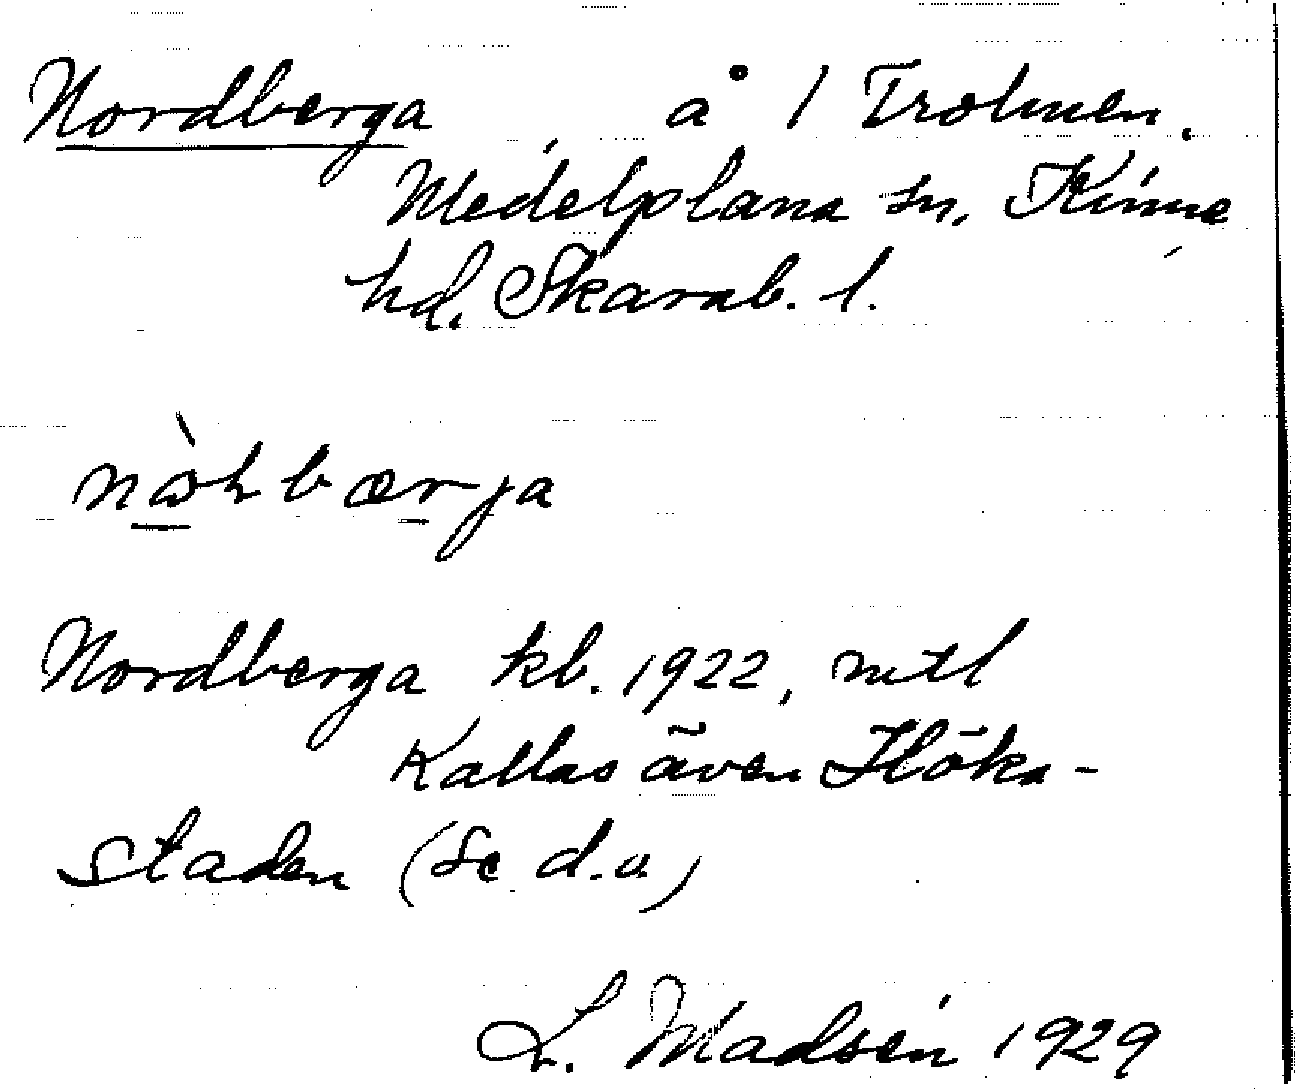 Nordberga å 1 Trolmen.
Medelplana sn, Kinne
hd. Skarab. l.
nɷ̀ɽbærja
Nordberga kb. 1922, mtl
Kallas även Höka-
staden (se d.o)
L. Madsén 1929